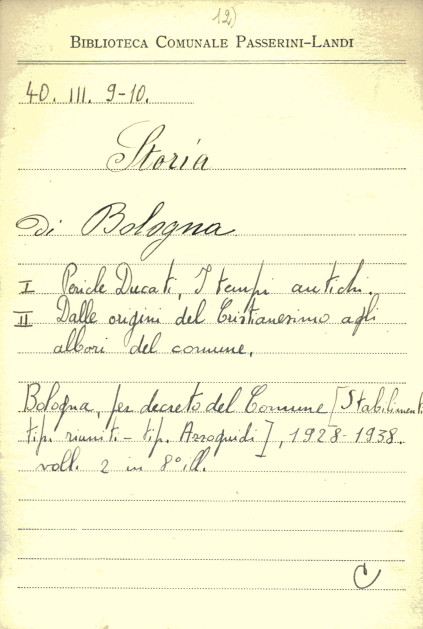 12)
BIBLIOTECA COMUNALE PASSERINI-LANDI
40. III. 9-10.
Storia
di Bologna
I Pericle Ducati, I tempi antichi.
II Dalle origini del Cristianesimo agli
albori del comune.
Bologna, per decreto del Comune [Stabilimenti
tip. riuniti - tip. Azzoguidi], 1928-1938.
voll. 2 in 8° ill.
C